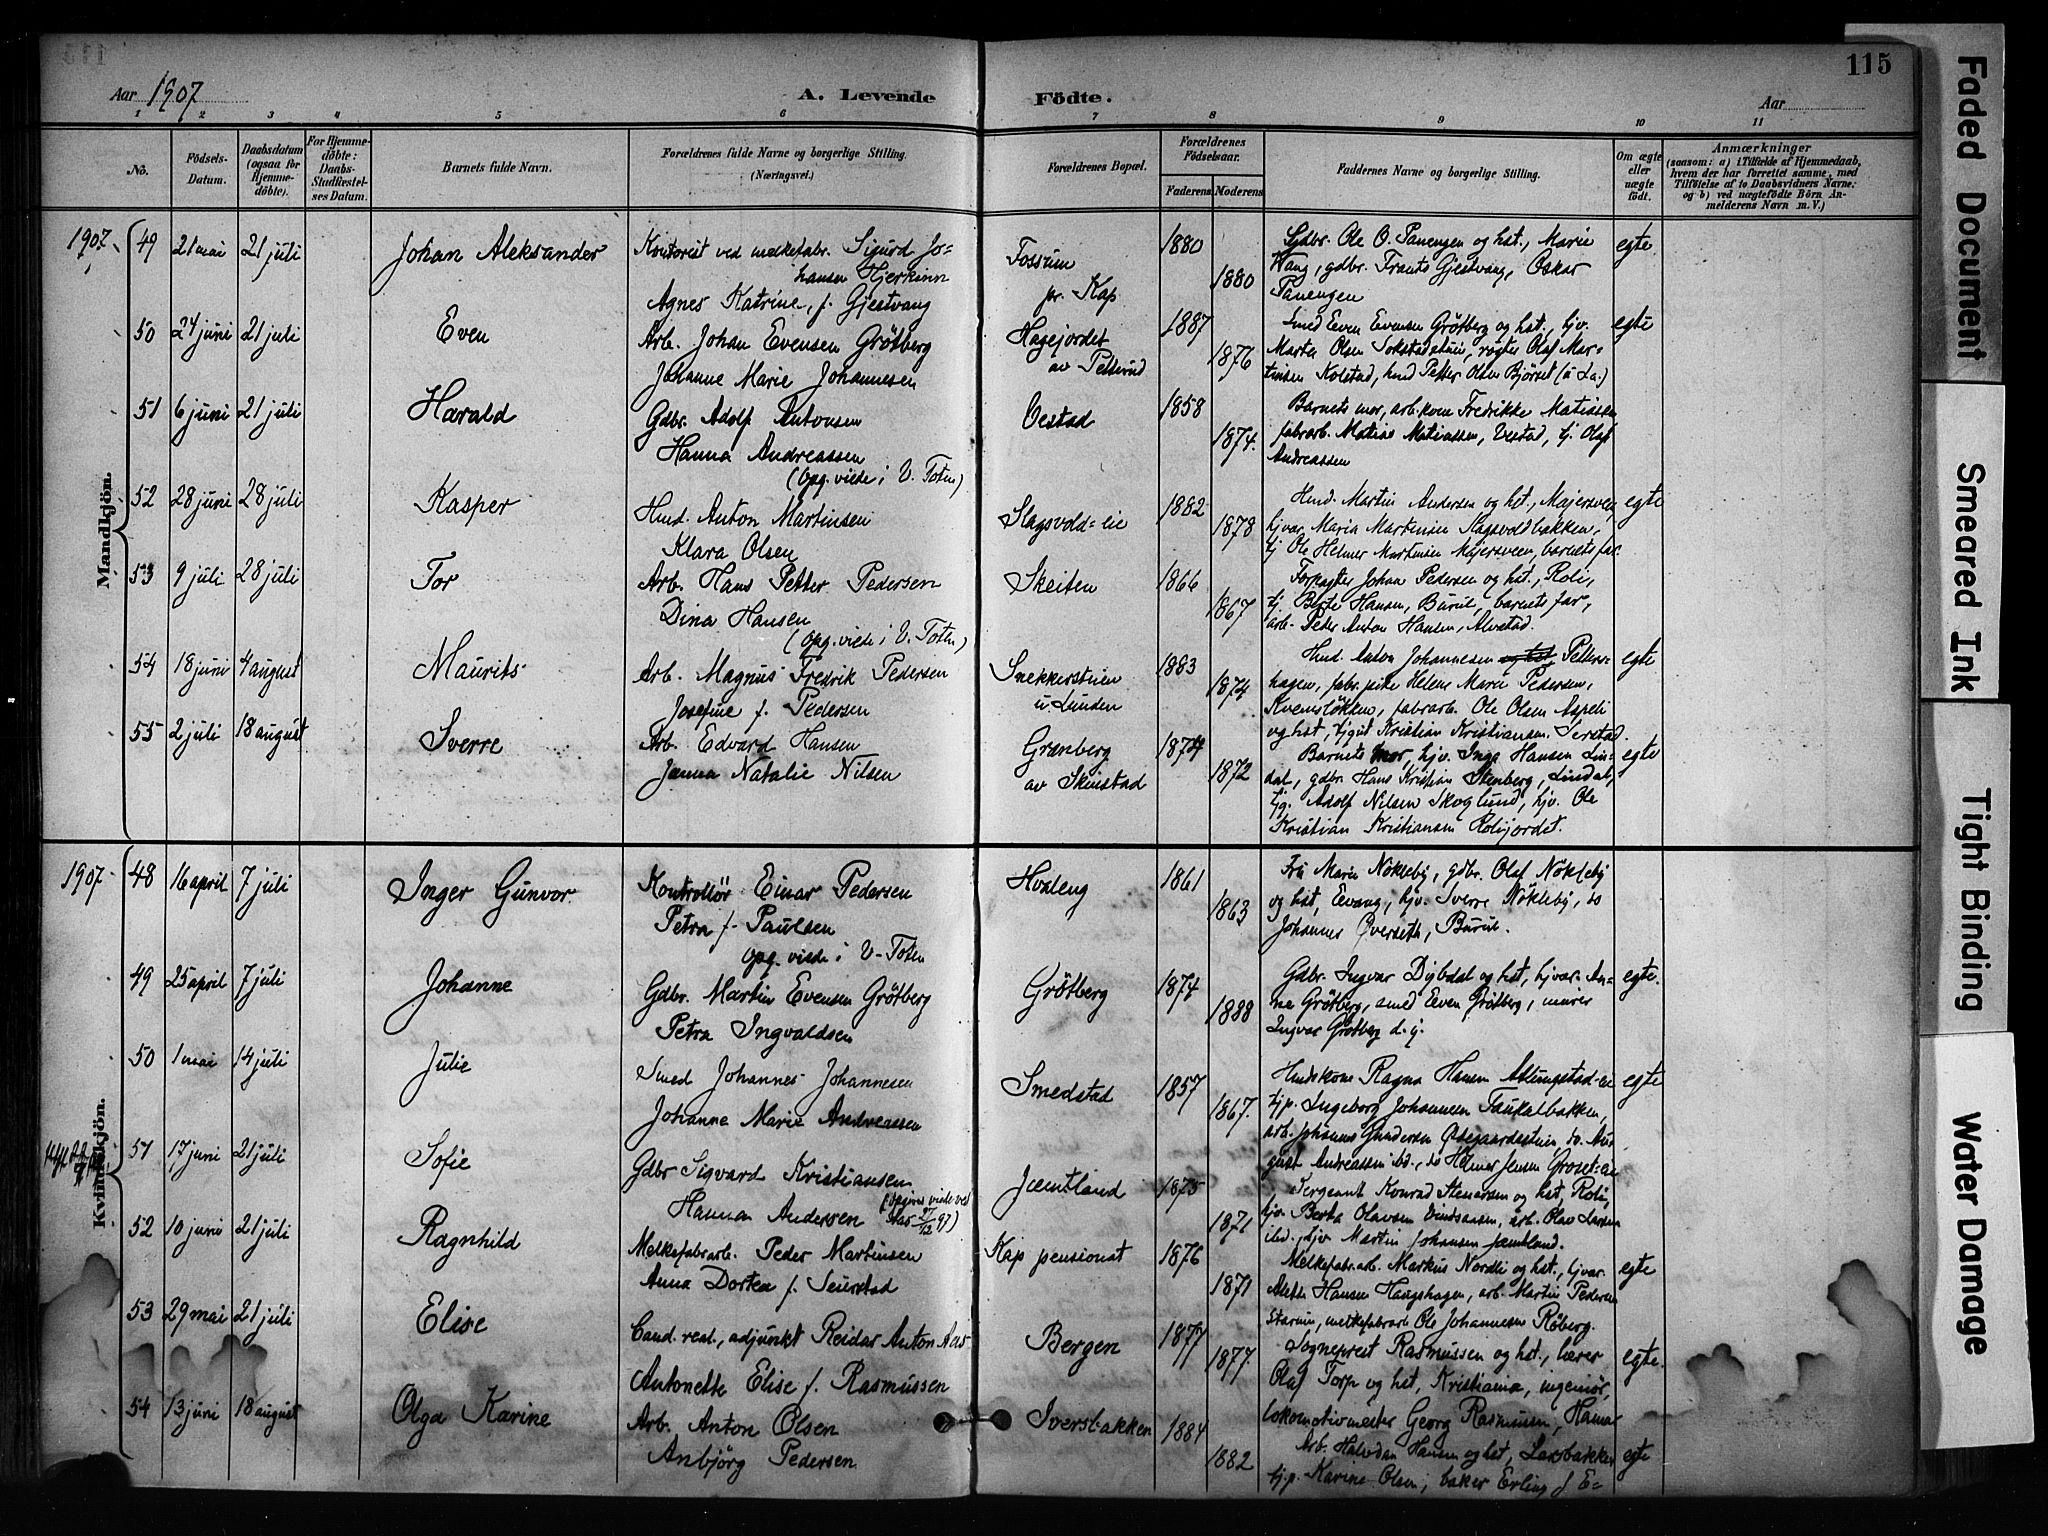 115
Aar 1907
A. Levende Födte.
Aar
1 2 3 4 5 6 7 8 9 10 11
No.
Födsels-Datum.
Daabsdatum (ogsaa for Hjemmedöbte).
For Hjemmedöbte: Daabs-Stadfæstelses Datum.
Barnets fulde Navn.
Forældrenes fulde Navne og borgerlige Stilling.
(Næringsvei.)
Forældrenes Bopæl.
Forældrenes Födselsaar.
Faderens Moderens
Faddernes Navne og borgerlige Stilling.
Om ægte eller uægte födt.
Anmærkninger
(saasom: a) i Tilfælde af Hjemmedaab, hvem der har forrettet samme, med Tilföielse af to Daabsvidners Navne; og b) ved uægtefödte Börn Anmelderens Navn m. V.)
Mandkjön.
1907. 49 21 mai 21 juli Johan Aleksander
Kontorist ved melkefabr. Sigurd Johansen Hjerkinn
Agnes Katrine, f. Gjestvang
Fossum pr. Kap 1880 1880
Gdbr. Ole O. Panengen og hst., Marie
Wang, gdbr. Frants Gjestvang, Oskar
Panengen
egte
50 24 juni 21 juli Even
Arb. Johan Evensen Grötberg
Johanne Marie Johannesen
Hagejordet av Petterud 1887 1876
Smed Even Evensen Grötberg og hst., hjv.
Marte Olsen Sokstadstuen, røgter Olaf Mar-
tinsen Kolstad, hmd Petter Olsen Bjørset
egte
51 6 juni 21 juli Harald
Gdbr. Adolf Antonsen
Hanna Andreassen
(Opg. viede i V. Toten)
Vestad 1858 1874.
Barnets mor, arb. kone Fredrikke Matiassen
fabrarb. Matias Matiassen, Vestad, tj. Olaf
Andreassen
52 28 juni 28 juli Kasper
Hmd. Anton Martinsen
Klara Olsen
Slagsvold=eie 1882 1878
Hmd. Martin Andersen og hst., Majersveen,
hjvar. Maria Martinsen Slagsvoldbakken,
tj Ole Helmer Martinsen Majersveen, barnets far.
egte
53 9 juli 28 juli Tor
Arb. Hans Petter Pedersen
Dina Hansen
(Opg. viede i V. Toten)
Skeiten 1866 1867
Forpagter Johan Pedersen og hst., Roli,
tj. Berte Hansen, Burul, barnets far,
arb. Peder Anton Hansen, Alvstad.
54 18 juni 4 august Maurits
Arb. Magnus Fredrik Pedersen
Josefine f. Pedersen
Snekkerstuen u. Lunden 1883 1874
Hmd. Anton Johannesen og hst Petters-
hagen, fabr. pike Helene Marie Pedersen,
Kvemsløkken, fabrarb. Ole Olsen Aspeli
og hst, tjgut Kristian Kristiansen. Serstad.
egte
55 2 juli 18 august Sverre
Arb. Edvard Hansen
Janna Natalie Nilsen
Grønberg av Skinstad 1874 1872
Barnets mor, hjv. Inga Hansen Lin-
dal, gdbr. Hans Kristian Stenberg, Lindal,
tjg. Adolf Nilsen Skoglund, hjv. Ole
Kristian Kristiansen Rolijordet.
egte
Kvindekjön.
1907. 48 16 april 7 juli Inger Gunvor.
Kontrollör Einar Pedersen
Petra f. Paulsen
Opg. viede i V-Toten
Hvaleng 1861 1863
Fru Marie Nökleby, gdbr. Olaf Nökleby
og hst, Evang, hjv. Sverre Nökleby, do
Johannes Øverseth, Burul.
49 25 april 7 juli Johanne
Gdbr. Martin Evensen Grötberg
Petra Ingvaldsen
Grötberg 1874 1888
Gdbr. Ingvar Dybdal og hst, hjvar. An-
na Grötberg, smed Even Grötberg, murer
Ingvar Grötberg d. y.
egte.
50 1 mai 14 juli Julie
Smed Johannes Johannesen
Johanne Marie Andreassen
Smedstad 1857 1867.
Hmdskone Ragna Hansen Alungstad-eie
tj.p. Ingeborg Johannesen Taukalbakken,
arb. Johannes Gundersen Østegaardsstuen do. Au-
gust Andreassen ibd., do Helmer Jensen Groset-eie
egte
51 17 juni 21 juli Sofie
Gdbr Sigvard Kristiansen
Hanna Andersen (Opgives viede ved Aas 27/12 97)
Jæmtland 1875 1871
Sergeant Konrad Stenersen og hst, Roli,
tjp. Berta Olavsen, arb. Olav Larsen
ibd., hjv Martin Johansen Jæmtland.
52 10 juni 21 juli Ragnhild
Melkefabrarb. Peder Martinsen
Anna Dortea f. Seierstad
Kap pensionat 1876 1871
Melkefabrarb. Markus Nordli og hst., hjvar.
Alette Hansen Haugshagen, arb. Martin Pedersen
melkefabrarb Ole Johannesen Röberg.
egte
53 29 mai 21 juli Elise
Cand. real., adjunkt Reidar Anton Aas
Antonette Elise f. Rasmussen
Bergen 1877 1877.
Sogneprest Rasmussen og hst., lærer
Olaf Torp og hst, Kristiania, ingeniör,
lokomotivmester Georg Rasmussen, Hamar
egte.
54 13 juni 18 august Olga Karine
Arb. Anton Olsen
Anbjörg Pedersen
Iversbakken 1884 1882
Arb. Halvdan Hansen og hst, Larsbakken
tj.p. Karine Olsen, baker Erling f E=
egte
Faded Document
Smeared Ink
Tight Binding
Water Damage